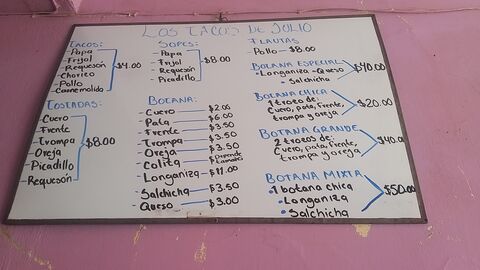 LOS TACOS DE JULIO
TACOS:
Papa
Frijol
Requesón
Chorizo
Pollo
Carnemolida
$4.00
TOSTADAS:
Cuero
Frente
Trompa
Oreja
Picadillo
Requesón
$8.00
SOPES:
Papa
Frijol
Requesón
Picadillo
$8.00
BOTANA:
Cuero $2.00
Pata $6.00
Frente $3.50
Trompa $3.50
Oreja $3.50
Colita Depende Tamaño
Longaniza $11.00
Salchicha $3.50
Queso $3.00
FLAUTAS
Pollo $8.00
BOTANA ESPECIAL
Longaniza Queso
Salchicha
$40.00
BOTANA CHICA
1 trozo de:
Cuero, pata, frente,
trompa y oreja
$20.00
BOTANA GRANDE
2 trozos de:
Cuero, pata, frente,
trompa y oreja
$40.00
BOTANA MIXTA
1 botana chica
Longaniza
Salchicha
$50.00